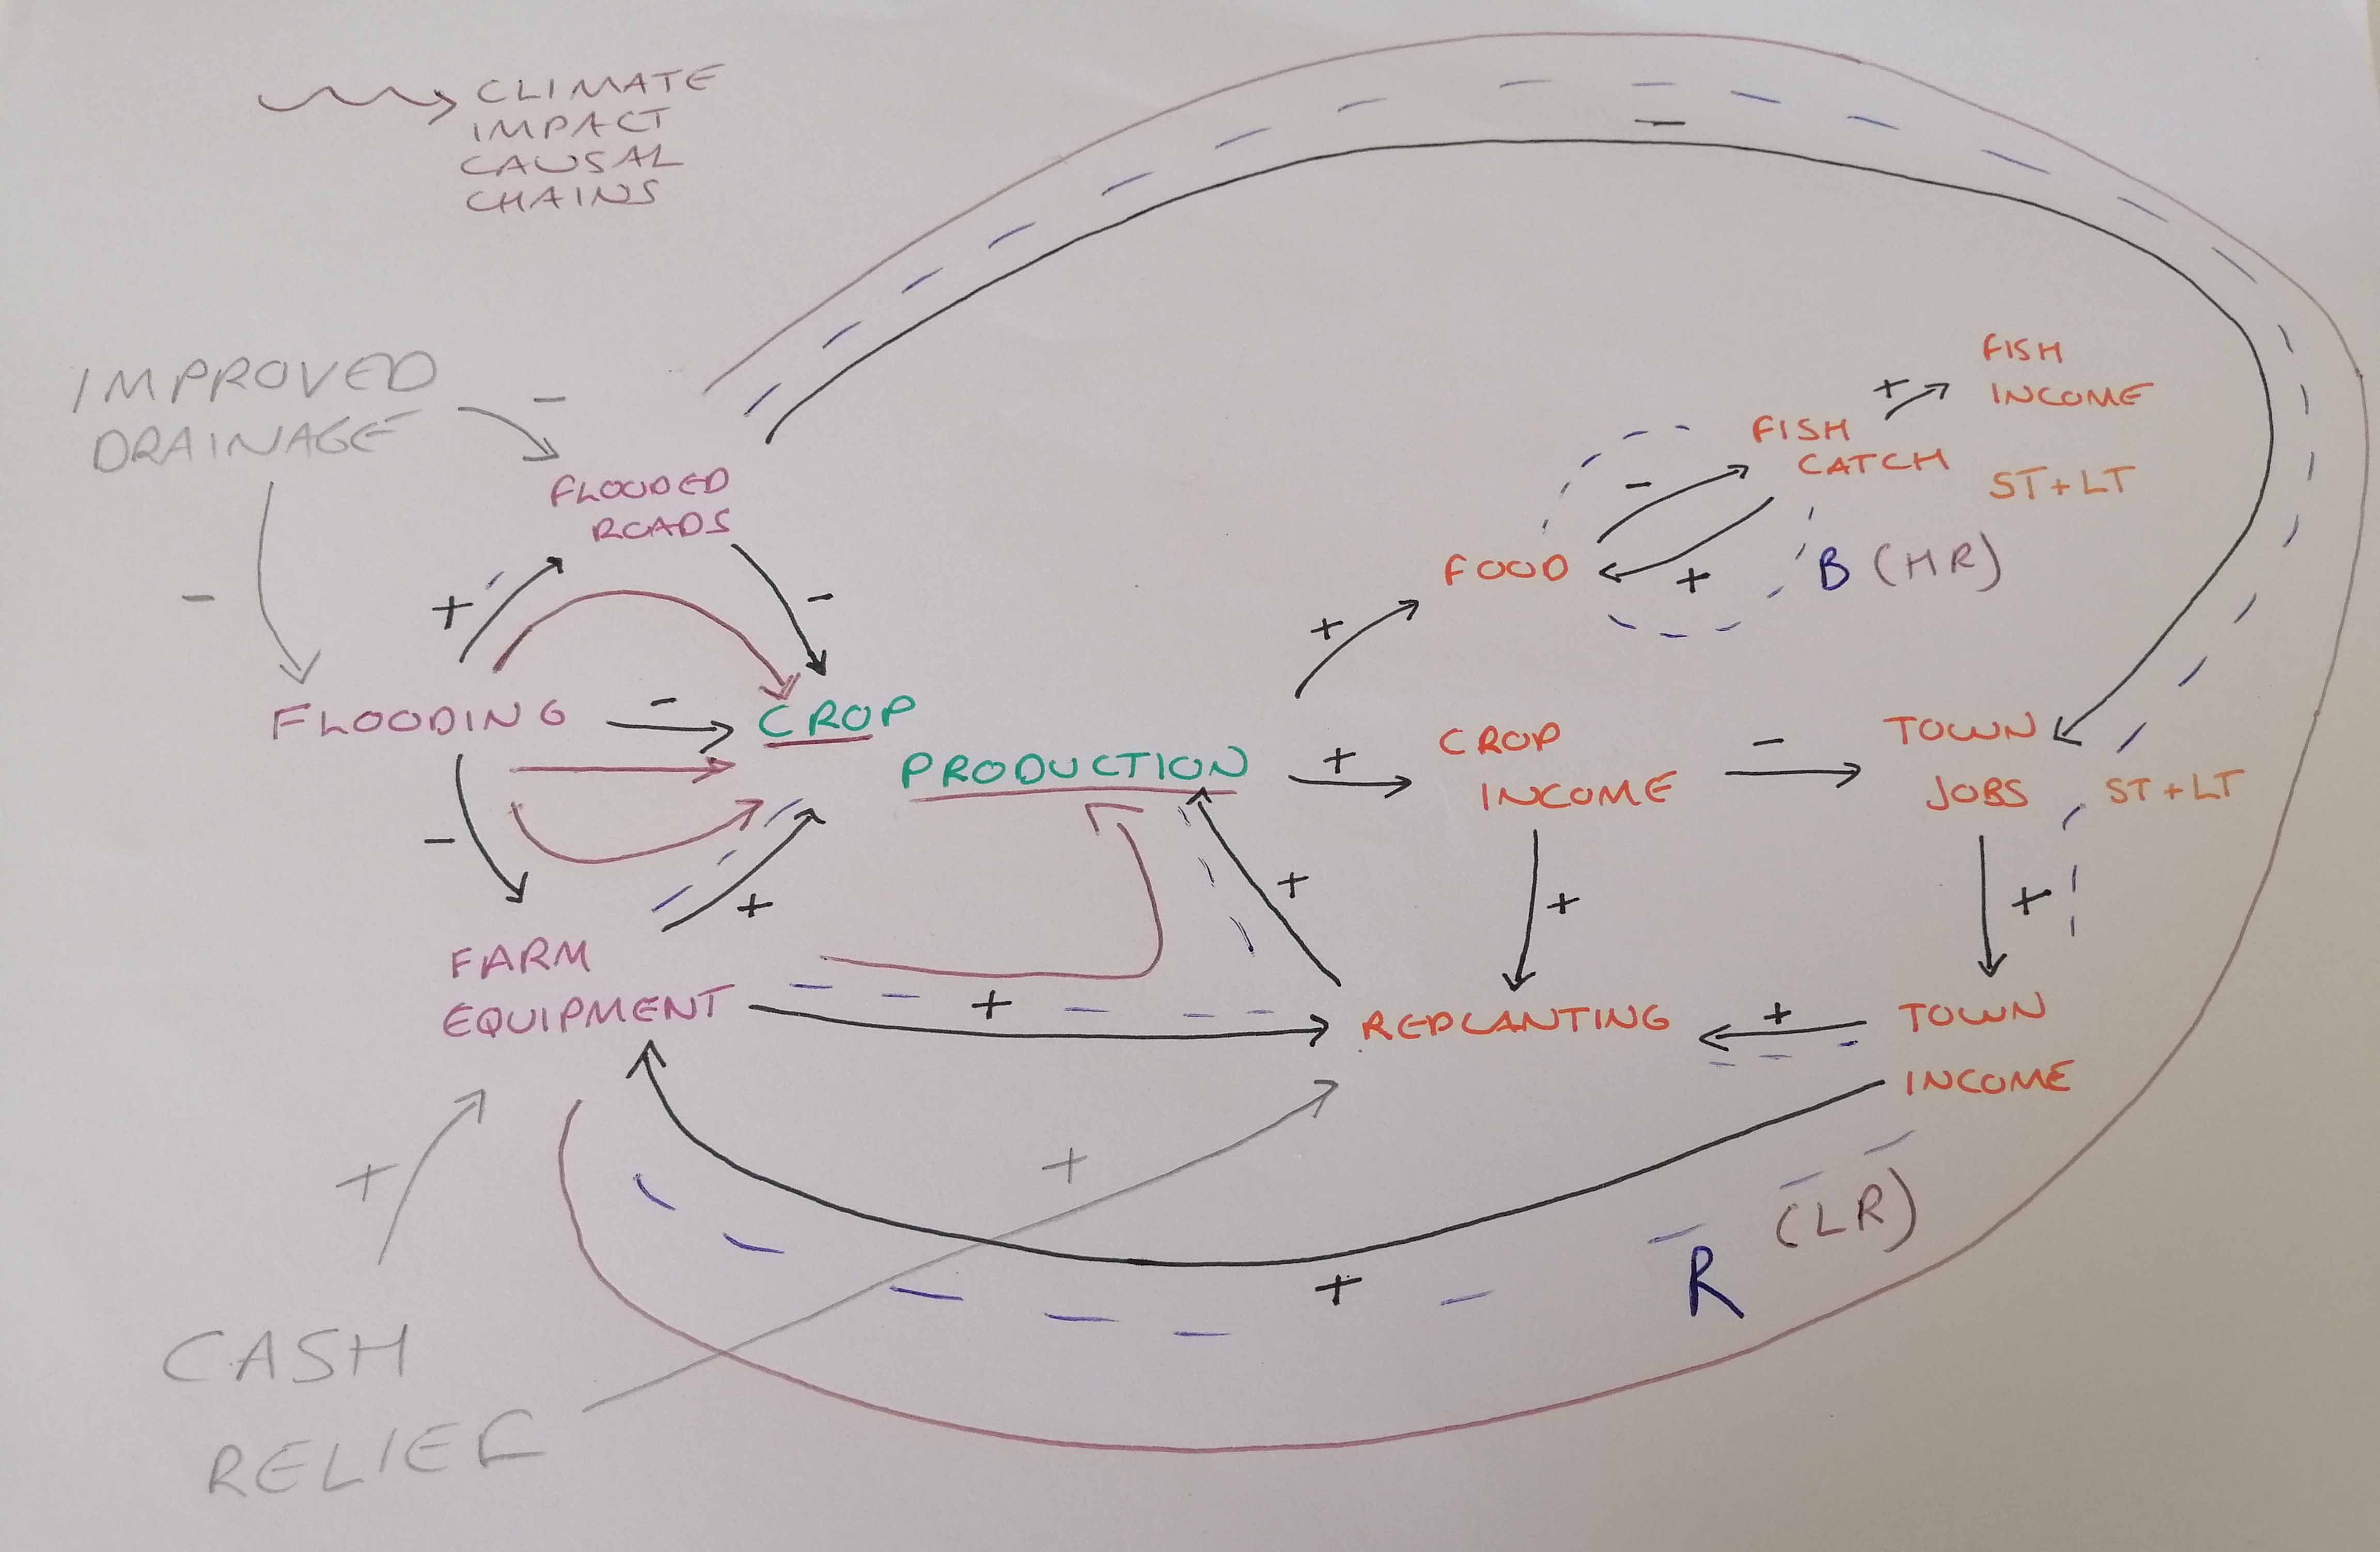 CLIMATE
IMPACT
CAUSAL
CHAINS
-
-
IMPROVED
DRAINAGE
-
FLOODED
ROADS
-
+
-
FLOODING
-
CROP
PRODUCTION
-
+
FARM
EQUIPMENT
+
+
CASH
RELIEF
+
+
+
FOOD
-
+
FISH
CATCH
+
FISH
INCOME
ST+LT
B (HR)
+
CROP
INCOME
-
TOWN
JOBS
ST+LT
+
+
+
REPLANTING
+
TOWN
INCOME
(LR)
R